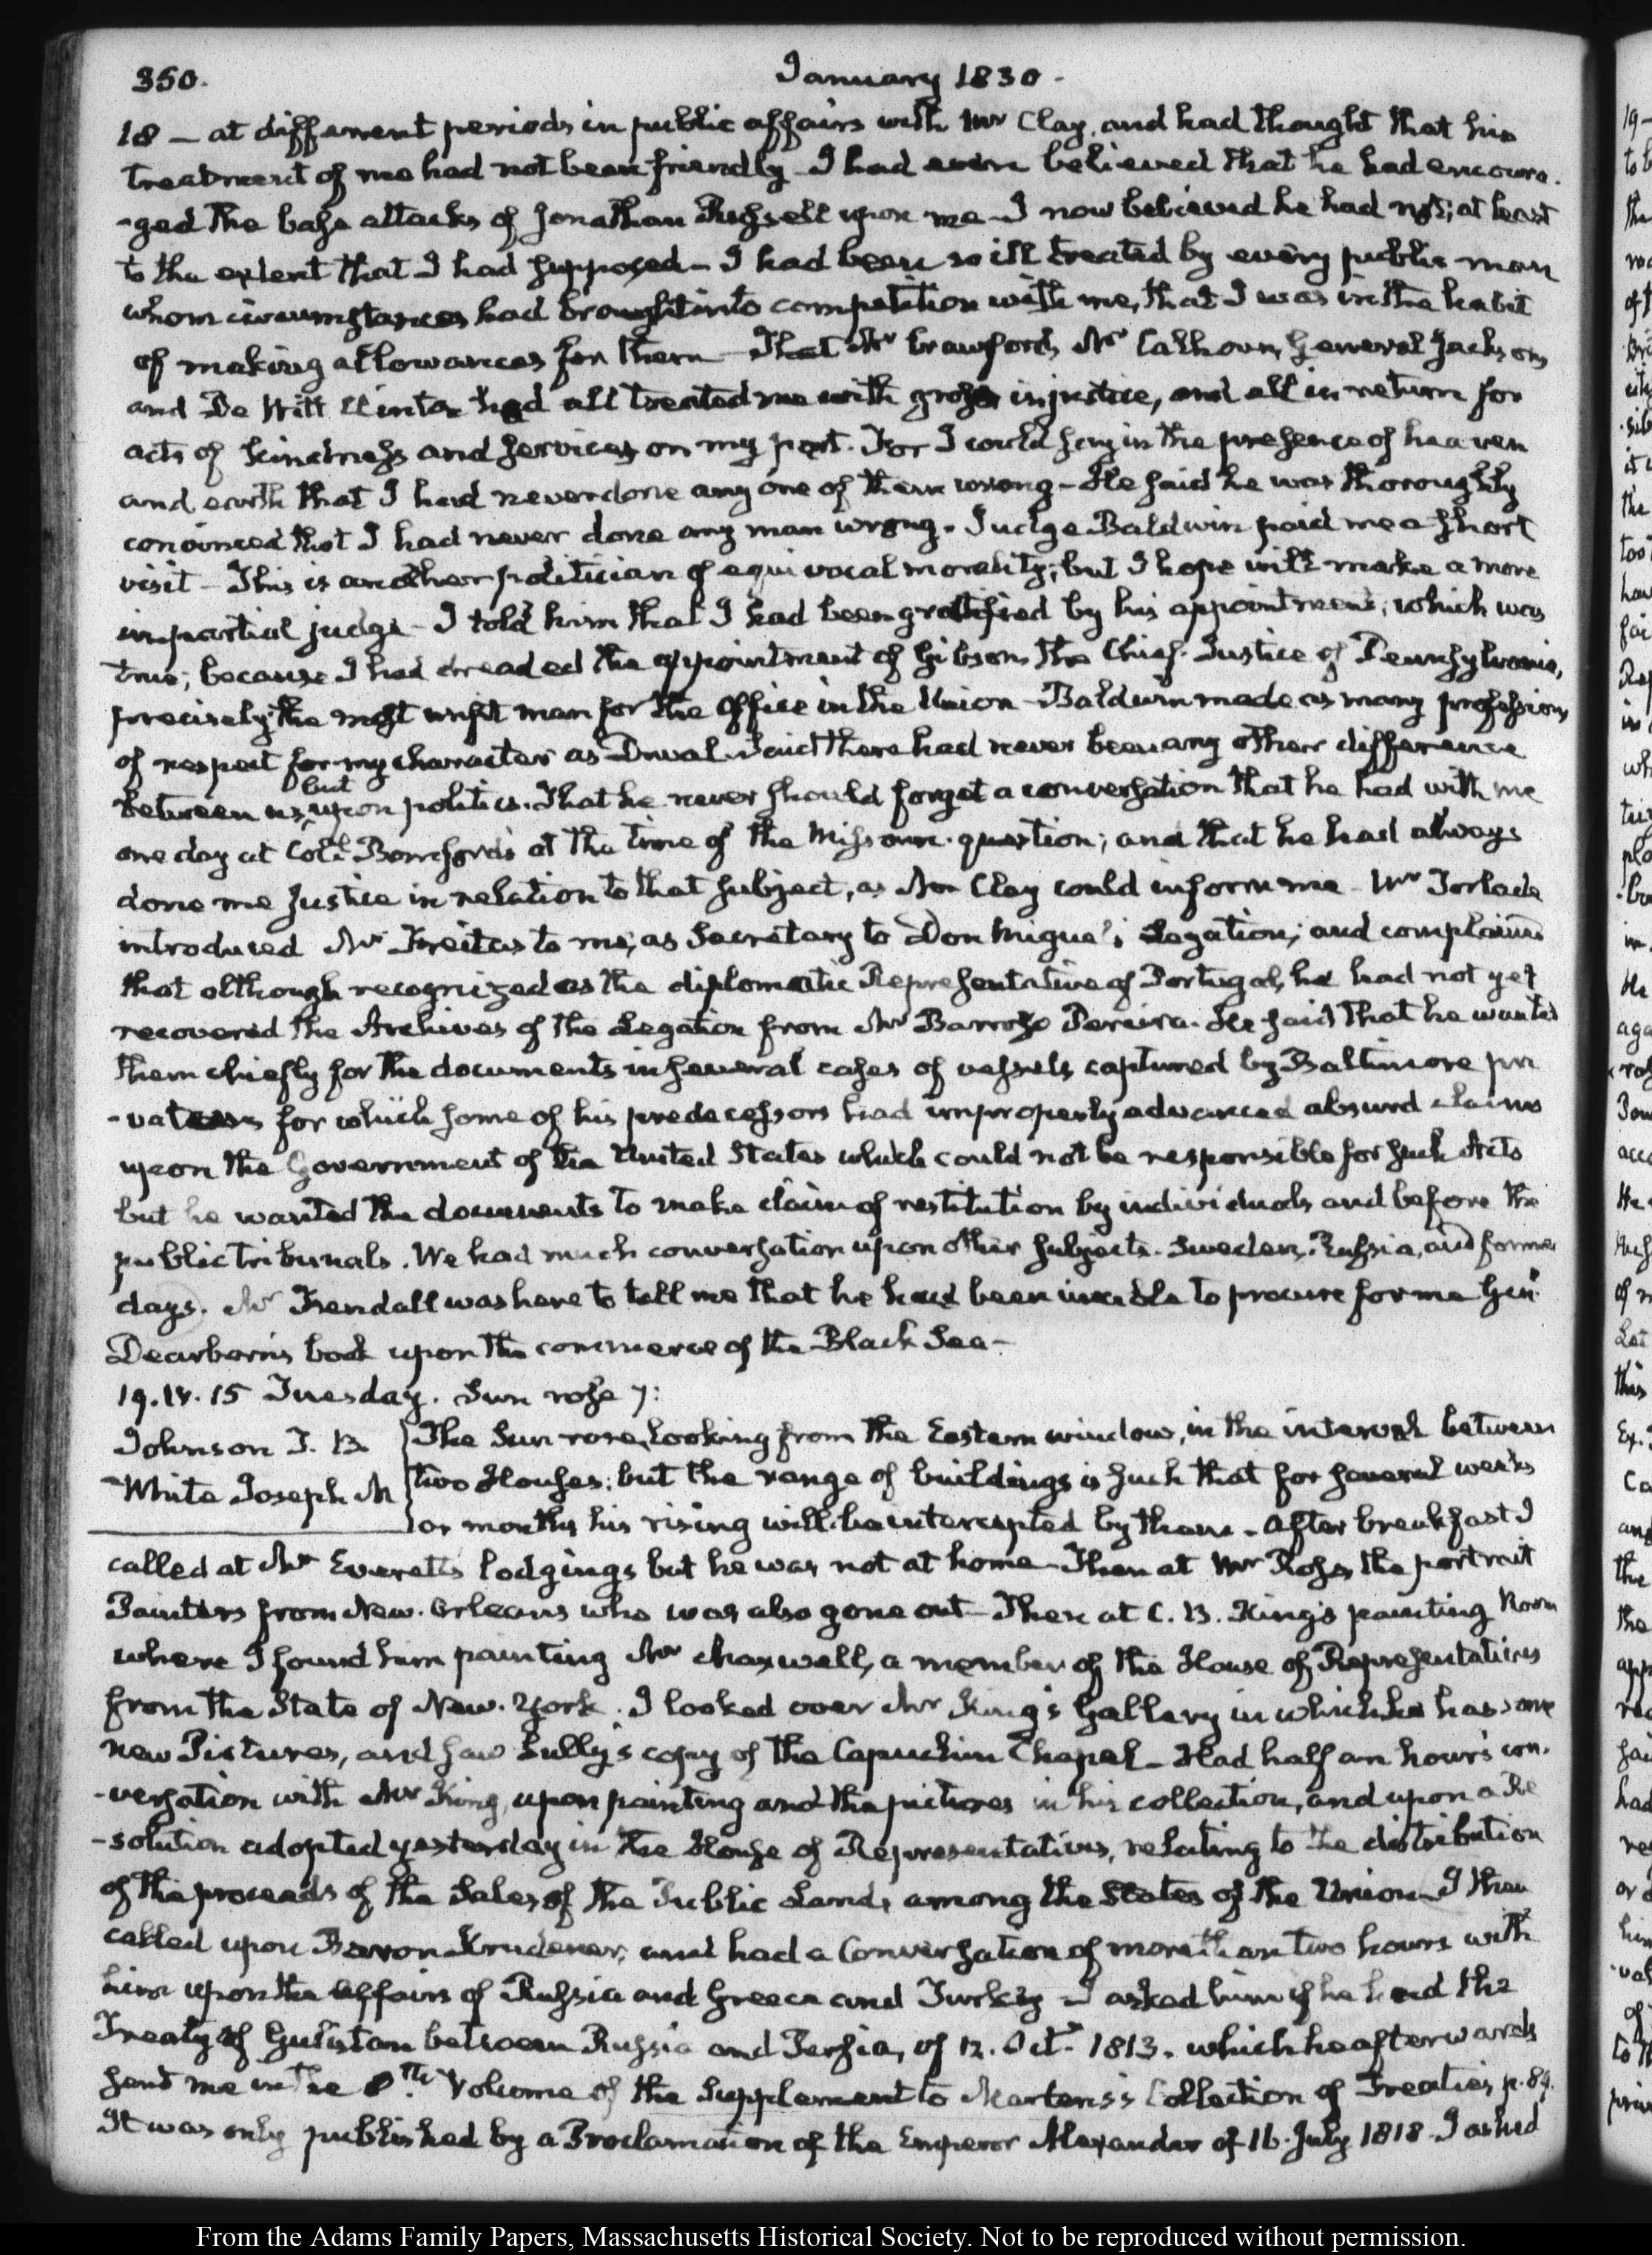 350.
January 1830.
18 — at different periods in public affairs with Mr Clay, and had thought that his
treatment of me had not been friendly — I had even believed that he had encoura-
-ged the base attacks of Jonathan Russell upon me — I now believed he had not; at least
to the extent that I had supposed — I had been so ill treated by every public man
whom circumstances had brought into competition with me, that I was in the habit
of making allowances for them — That Mr Crawford, Mr Calhoun, General Jackson,
and De Witt Clinton had all treated me with gross injustice, and all in return for
acts of kindness and services on my part. For I could say in the presence of heaven
and earth that I had never done any one of them wrong — He said he was thoroughly
convinced that I had never done any man wrong. Judge Baldwin paid me a short
visit — This is another politician of equivocal morality; but I hope will make a more
impartial judge — I told him that I had been gratified by his appointment; which was
true; because I had dreaded the appointment of Gibson, the Chief-Justice of Pennsylvania,
precisely the most unfit man for the Office in the Union — Baldwin made as many professions
of respect for my character as Duval. Said there had never been any other difference
between us, but upon politics. That he never should forget a conversation that he had with me
one day at Coll. Bomford's at the time of the Missouri question; and that he had always
done me justice in relation to that subject, as Mr Clay could inform me — Mr Torlade
introduced Mr Freitas to me, as Secretary to Don Miguel's Legation; and complains
that although recognized as the diplomatic Representative of Portugal, he had not yet
recovered the Archives of the Legation from Mr Barrozo Pereira. He said that he wanted
them chiefly for the documents in several cases of vessels captured by Baltimore pri
-vateers for which some of his predecessors had improperly advanced absurd claims
upon the Government of the United States which could not be responsible for such Acts
but he wanted the documents to make claim of restitution by individuals and before the
public tribunals. We had much conversation upon other subjects. Sweden, Russia, and former
days. Mr Kendall was here to tell me that he had been unable to procure for me Genl.
Dearborn's book upon the commerce of the Black Sea —
19. IV. 15 Tuesday. Sun rose 7:
Johnson J. B.
White Joseph M
The Sun rose, looking from the Eastern window, in the interval between
two Houses; but the range of buildings is such that for several weeks
or months his rising will be intercepted by them — After breakfast I
called at Mr Everett's lodgings but he was not at home — Then at Mr Ross, the portrait
Painters from New-Orleans who was also gone out — Then at C. B. King's painting Room
where I found him painting Mr Maxwell, a member of the House of Representatives
from the State of New-York. I looked over Mr King's Gallery in which he has some
new Pictures, and saw Sully's copy of the Capuchin Chapel — Had half an hour's con-
-versation with Mr King, upon painting and the pictures in his collection, and upon a Re
-solution adopted yesterday in the House of Representatives, relating to the distribution
of the proceeds of the Sales of the Public Lands among the States of the Union — I then
called upon Baron Krudener, and had a Conversation of more than two hours with
him upon the affairs of Russia and Greece and Turkey — I asked him if he had the
Treaty of Gulistan between Russia and Persia, of 12. Octr. 1813. which he afterwards
sent me in the 8th. Volume of the Supplement to Martens's Collection of Treaties p. 89.
It was only published by a Proclamation of the Emperor Alexander of 16. July 1818. I asked
From the Adams Family Papers, Massachusetts Historical Society. Not to be reproduced without permission.